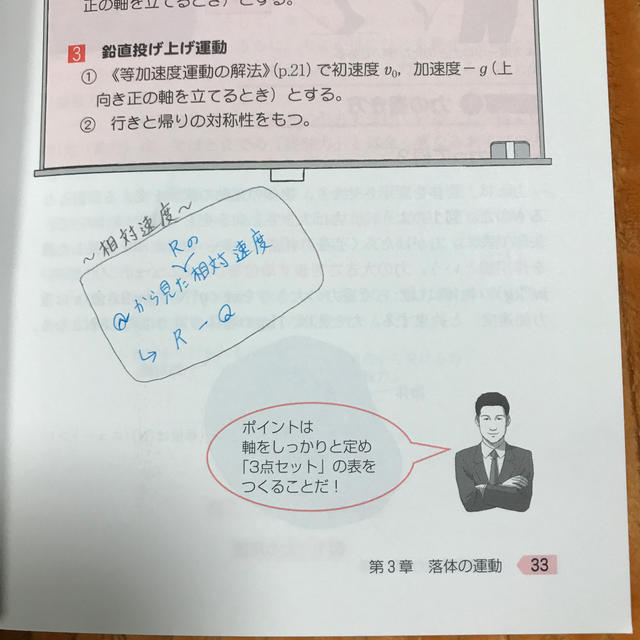 正の軸を立てるとき）とする。
3 鉛直投げ上げ運動
① 《等加速度運動の解法》(p.21) で初速度 v₀, 加速度－g（上
向き正の軸を立てるとき）とする。
② 行きと帰りの対称性をもつ。
～相対速度～
Rの
Qから見た相対速度
↳ R － Q
ポイントは
軸をしっかりと定め
「3点セット」の表を
つくることだ！
第3章 落体の運動 33